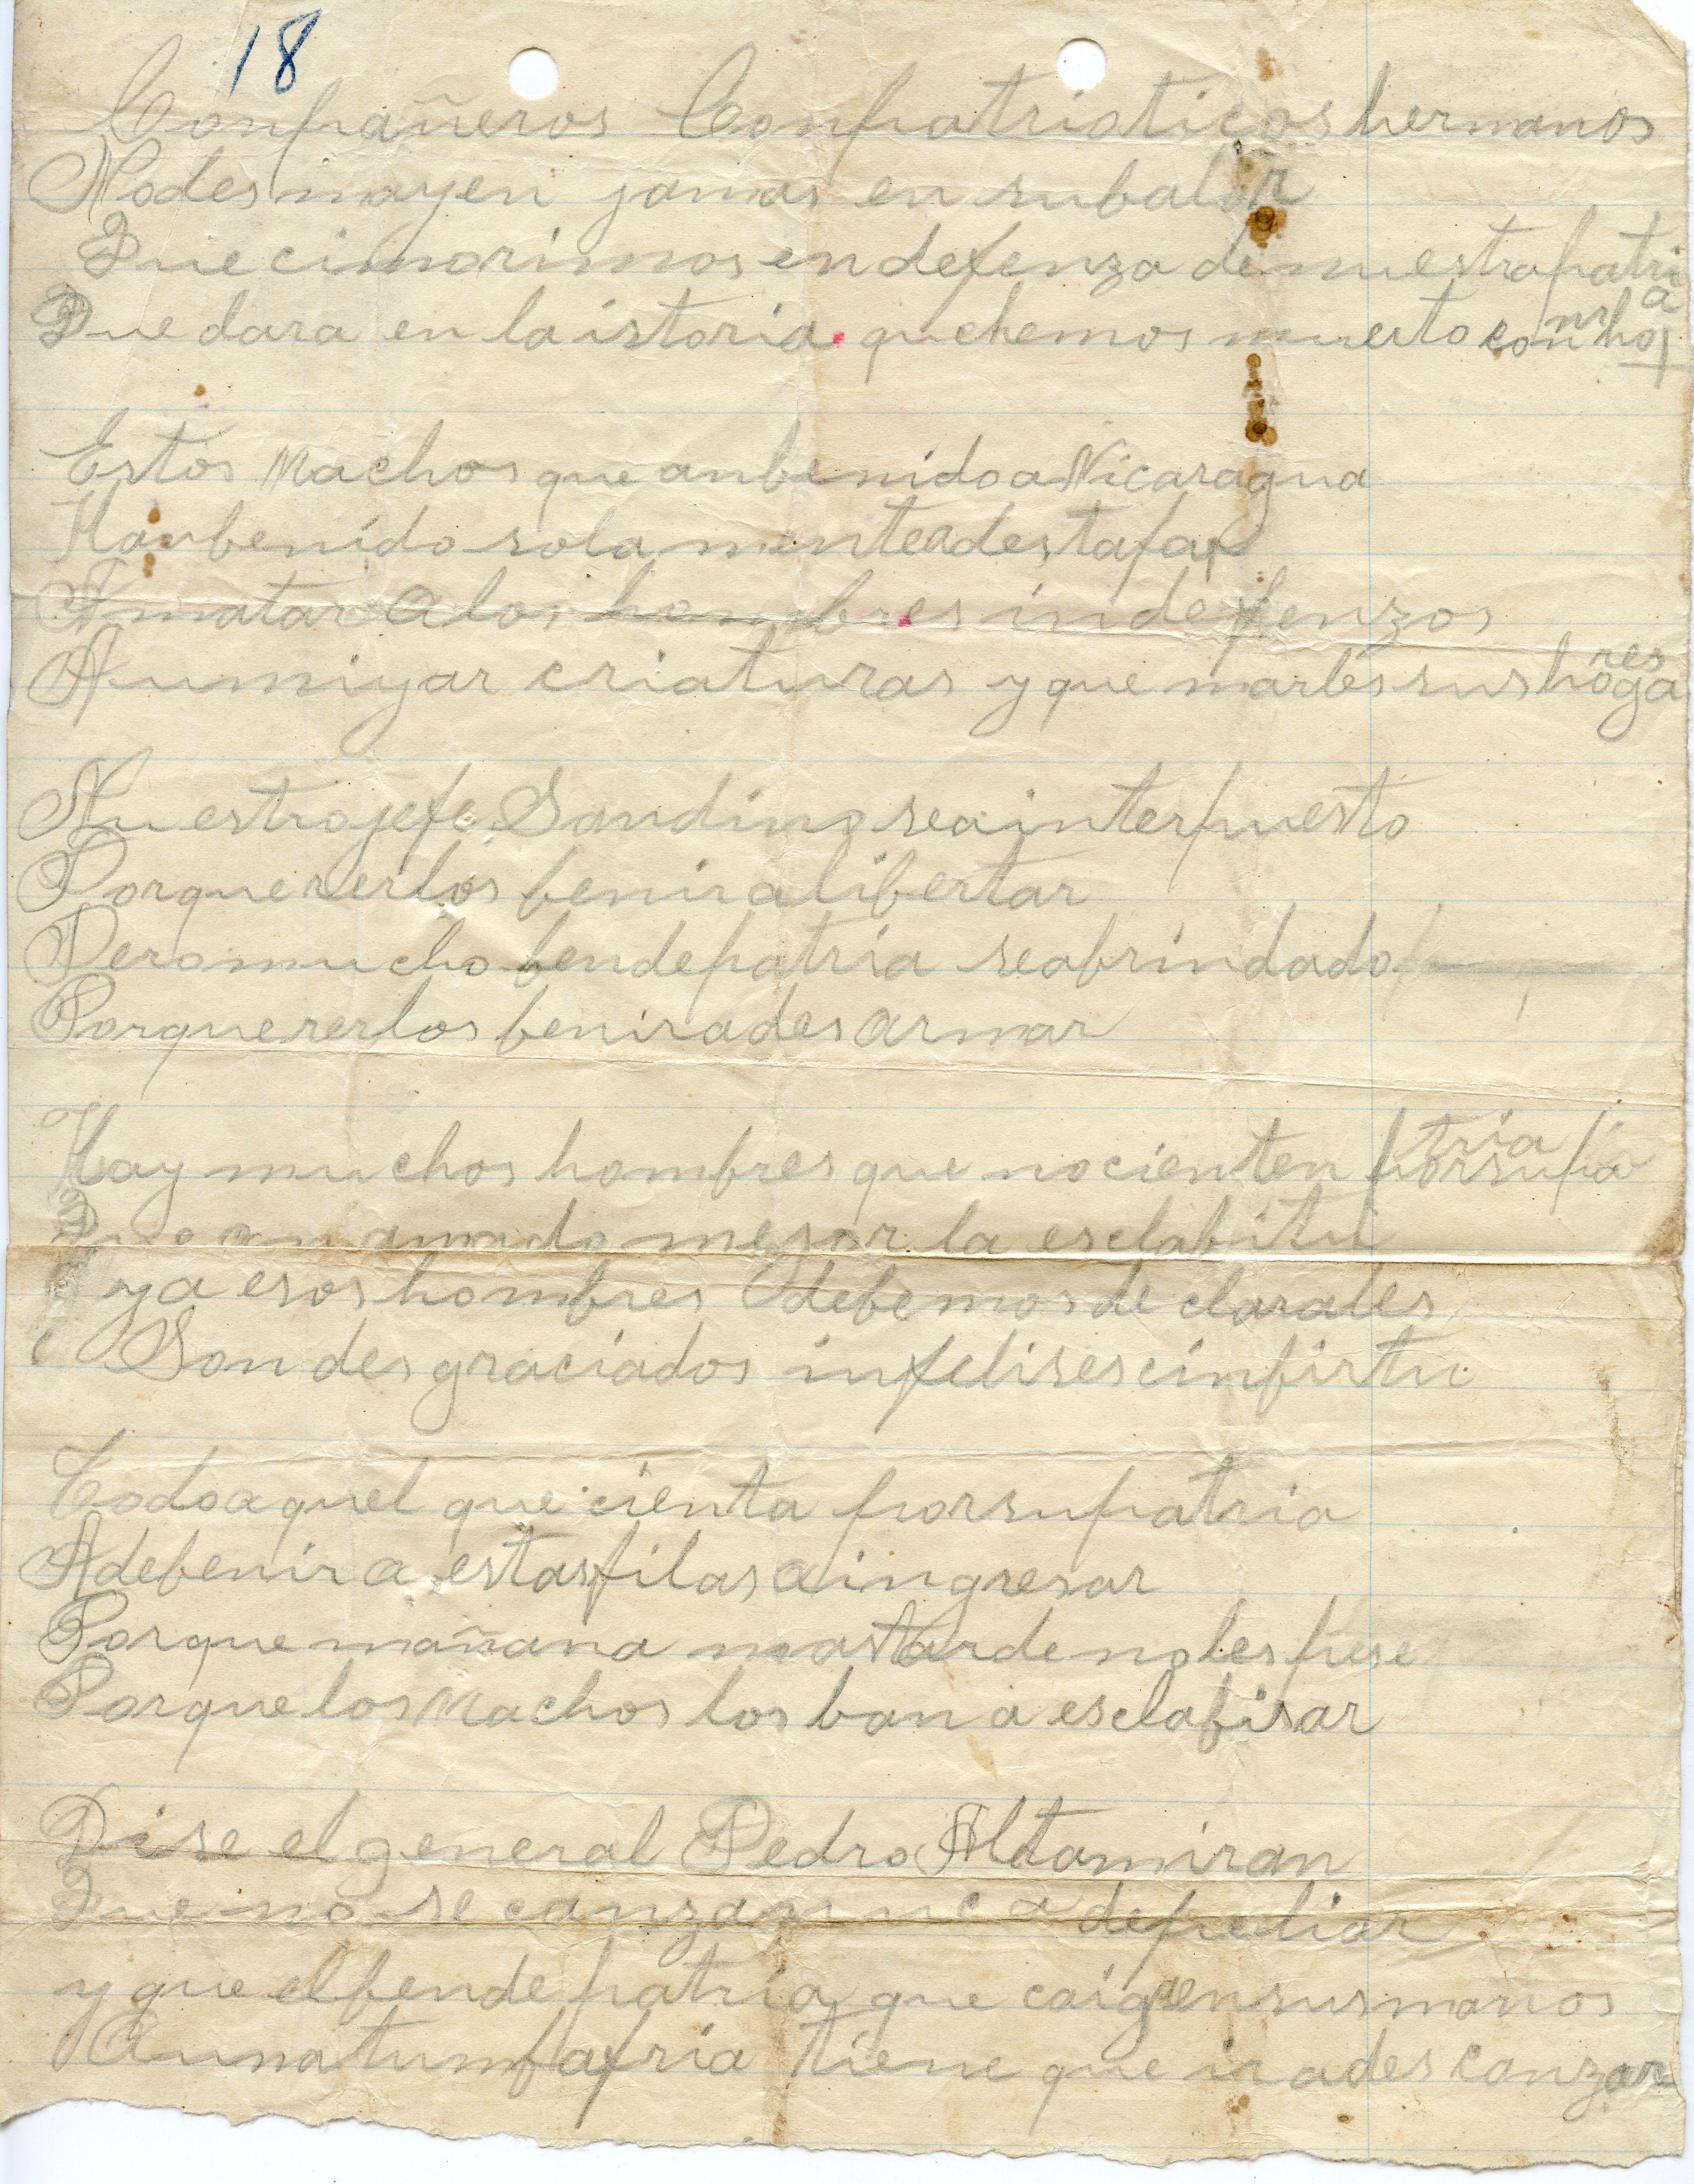 18
Conpañeros Conpatrioticos hermanos
Nodesmayen jamas en subalor
Que cimorimos endefenza denuestrapatria
Quedara en laistoria quehemos muerto conhonr
Estos Machos que anbenidoaNicaragua
Hanbenido solamenteadestafar
Amatar Alos hombres indefenzos
Aumiyar criaturas yque marles sushogares
Nuestrojefe Sandino seainterpuesto
Porquererlos beniralibertar
Peromucho bendepatria seabrindado
Porquererlos beniradesarmar
Hay muchos hombres que nocienten porsupatria
Que an amado mejor la esclabitu
ya esos hombres debemos declarales
Son desgraciados infelises cinbirtu
Todoaquel que cienta porsupatria
Adebenir a estasfilas aingresar
Porquemañana mastarde noles pese
Porquelos Machos los ban a esclabisar
Dise el general Pedro Altamiran
Que no se canzanunca depeliar
y que elbendepatria que caigaensusmanos
Aunatumbafria tiene que iradescanzar